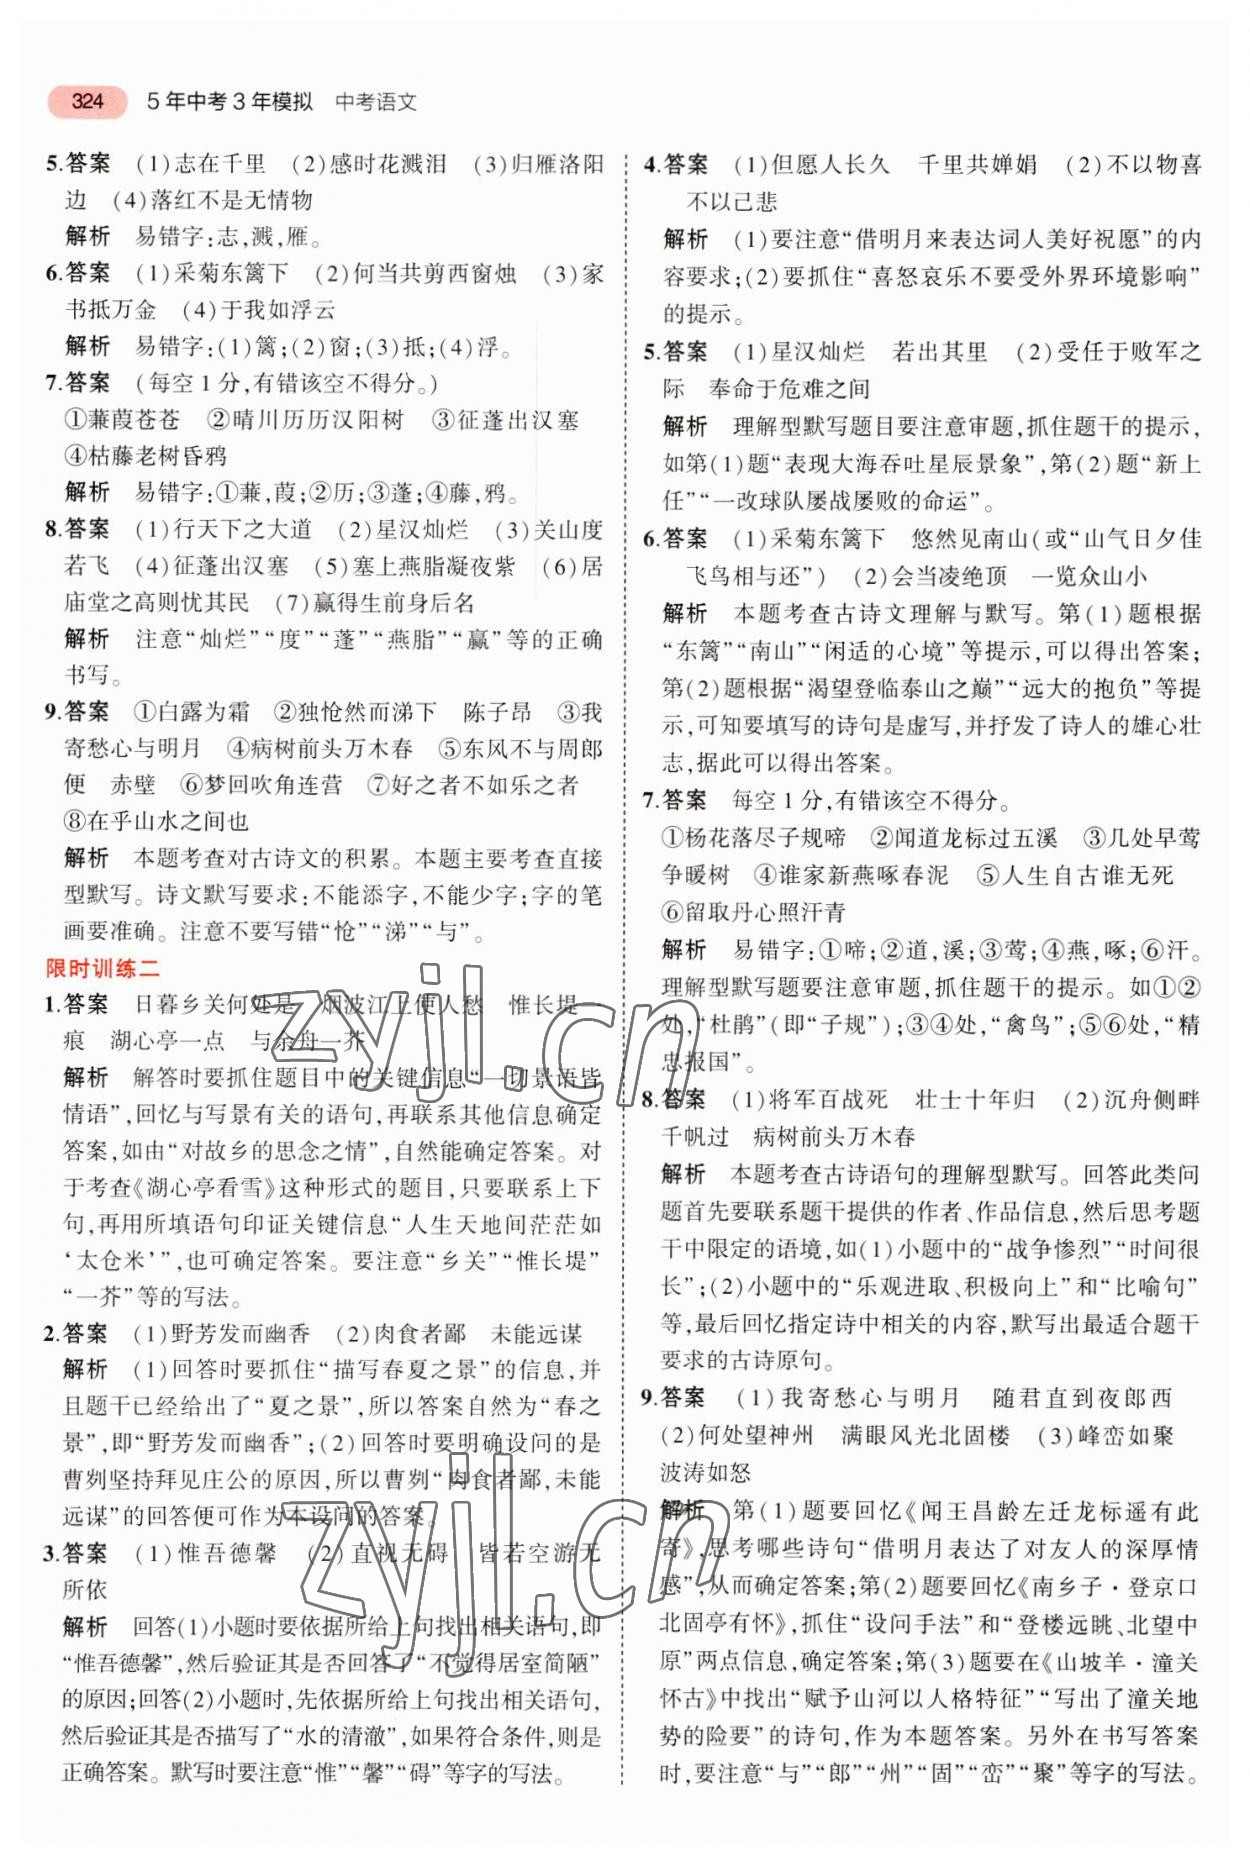 324 5年中考3年模拟 中考语文
5.答案 (1)志在千里 (2)感时花溅泪 (3)归雁洛阳
边 (4)落红不是无情物
解析 易错字:志,溅,雁。
6.答案 (1)采菊东篱下 (2)何当共剪西窗烛 (3)家
书抵万金 (4)于我如浮云
解析 易错字:(1)篱;(2)窗;(3)抵;(4)浮。
7.答案 (每空1分,有错该空不得分。)
①蒹葭苍苍 ②晴川历历汉阳树 ③征蓬出汉塞
④枯藤老树昏鸦
解析 易错字:①蒹,葭;②历;③蓬;④藤,鸦。
8.答案 (1)行天下之大道 (2)星汉灿烂 (3)关山度
若飞 (4)征蓬出汉塞 (5)塞上燕脂凝夜紫 (6)居
庙堂之高则忧其民 (7)赢得生前身后名
解析 注意“灿烂”“度”“蓬”“燕脂”“赢”等的正确
书写。
9.答案 ①白露为霜 ②独怆然而涕下 陈子昂 ③我
寄愁心与明月 ④病树前头万木春 ⑤东风不与周郎
便 赤壁 ⑥梦回吹角连营 ⑦好之者不如乐之者
⑧在乎山水之间也
解析 本题考查对古诗文的积累。本题主要考查直接
型默写。诗文默写要求:不能添字,不能少字;字的笔
画要准确。注意不要写错“怆”“涕”“与”。
限时训练二
1.答案 日暮乡关何处是 烟波江上使人愁 惟长堤一
痕 湖心亭一点 与余舟一芥
解析 解答时要抓住题目中的关键信息“一切景语皆
情语”,回忆与写景有关的语句,再联系其他信息确定
答案,如由“对故乡的思念之情”,自然能确定答案。对
于考查《湖心亭看雪》这种形式的题目,只要联系上下
句,再用所填语句印证关键信息“人生天地间茫茫如
‘太仓米’”,也可确定答案。要注意“乡关”“惟长堤”
“一芥”等的写法。
2.答案 (1)野芳发而幽香 (2)肉食者鄙 未能远谋
解析 (1)回答时要抓住“描写春夏之景”的信息,并
且题干已经给出了“夏之景”,所以答案自然为“春之
景”,即“野芳发而幽香”;(2)回答时要明确设问的是
曹刿坚持拜见庄公的原因,所以曹刿“肉食者鄙,未能
远谋”的回答便可作为本设问的答案。
3.答案 (1)惟吾德馨 (2)直视无碍 皆若空游无
所依
解析 回答(1)小题时要依据所给上句找出相关语句,即
“惟吾德馨”,然后验证其是否回答了“不觉得居室简陋”
的原因;回答(2)小题时,先依据所给上句找出相关语句,
然后验证其是否描写了“水的清澈”,如果符合条件,则为
正确答案。默写时要注意“惟”“馨”“碍”等字的写法。
4.答案 (1)但愿人长久 千里共婵娟 (2)不以物喜
不以己悲
解析 (1)要注意“借明月来表达词人美好祝愿”的内
容要求;(2)要抓住“喜怒哀乐不要受外界环境影响”
的提示。
5.答案 (1)星汉灿烂 若出其里 (2)受任于败军之
际 奉命于危难之间
解析 理解型默写题目要注意审题,抓住题干的提示,
如第(1)题“表现大海吞吐星辰景象”,第(2)题“新上
任”“一改球队屡战屡败的命运”。
6.答案 (1)采菊东篱下 悠然见南山(或“山气日夕佳
飞鸟相与还”) (2)会当凌绝顶 一览众山小
解析 本题考查古诗文理解与默写。第(1)题根据
“东篱”“南山”“闲适的心境”等提示,可以得出答案;
第(2)题根据“渴望登临泰山之巅”“远大的抱负”等提
示,可知要填写的诗句是虚写,并抒发了诗人的雄心壮
志,据此可以得出答案。
7.答案 每空1分,有错该空不得分。
①杨花落尽子规啼 ②闻道龙标过五溪 ③几处早莺
争暖树 ④谁家新燕啄春泥 ⑤人生自古谁无死
⑥留取丹心照汗青
解析 易错字:①啼;②道,溪;③莺;④燕,啄;⑥汗。
理解型默写题要注意审题,抓住题干的提示。如①②
处,“杜鹃”(即“子规”);③④处,“禽鸟”;⑤⑥处,“精
忠报国”。
8.答案 (1)将军百战死 壮士十年归 (2)沉舟侧畔
千帆过 病树前头万木春
解析 本题考查古诗语句的理解型默写。回答此类问
题首先要联系题干提供的作者、作品信息,然后思考题
干中限定的语境,如(1)小题中的“战争惨烈”“时间很
长”;(2)小题中的“乐观进取、积极向上”和“比喻句”
等,最后回忆指定诗中相关的内容,默写出最适合题干
要求的古诗原句。
9.答案 (1)我寄愁心与明月 随君直到夜郎西
(2)何处望神州 满眼风光北固楼 (3)峰峦如聚
波涛如怒
解析 第(1)题要回忆《闻王昌龄左迁龙标遥有此
寄》,思考哪些诗句“借明月表达了对友人的深厚情
感”,从而确定答案;第(2)题要回忆《南乡子·登京口
北固亭有怀》,抓住“设问手法”和“登楼远眺、北望中
原”两点信息,确定答案;第(3)题要在《山坡羊·潼关
怀古》中找出“赋予山河以人格特征”“写出了潼关地
势的险要”的诗句,作为本题答案。另外在书写答案
时,要注意“与”“郎”“州”“固”“峦”“聚”等字的写法。
zyjl.cn
zyjl.cn